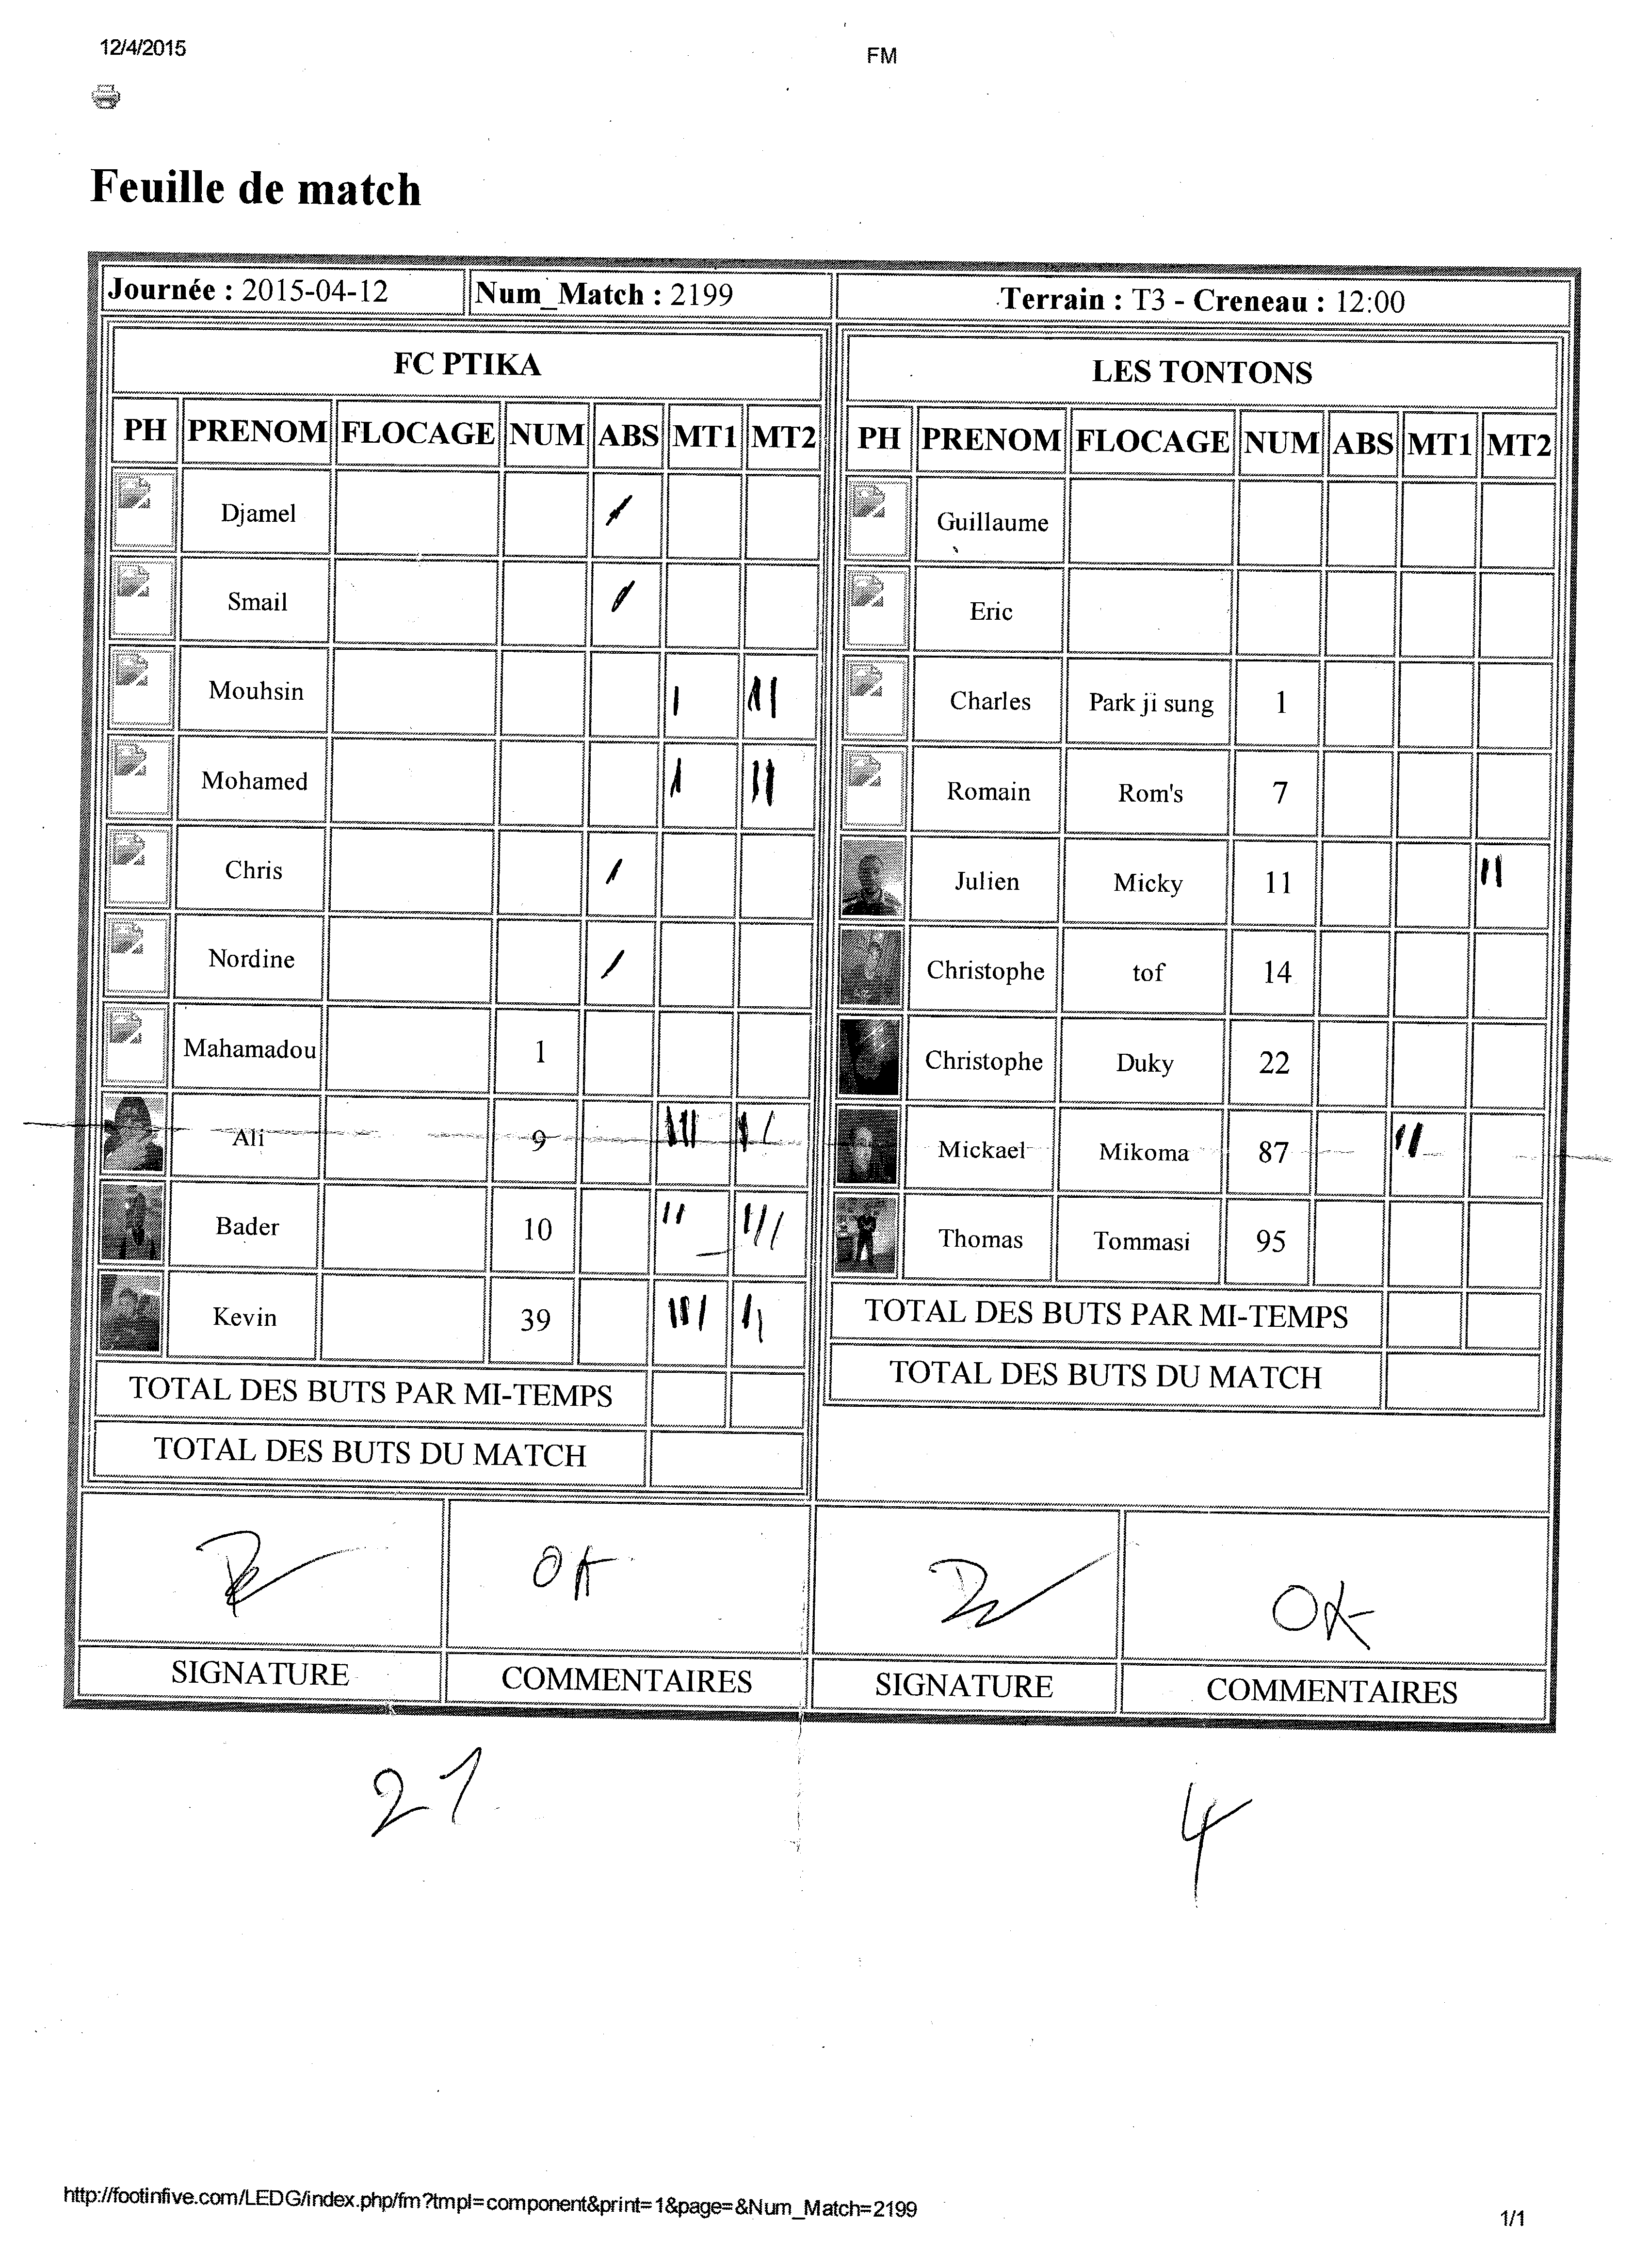 12/4/2015
FM
Feuille de match
Journée : 2015-04-12 Num_Match : 2199 Terrain : T3 - Creneau : 12:00
FC PTIKA
PH PRENOM FLOCAGE NUM ABS MT1 MT2
Djamel /
Smail /
Mouhsin I III
Mohamed I II
Chris /
Nordine /
Mahamadou 1
Ali 9 IIII II
Bader 10 II III
Kevin 39 IIII II
TOTAL DES BUTS PAR MI-TEMPS
TOTAL DES BUTS DU MATCH
OK
SIGNATURE COMMENTAIRES
21
LES TONTONS
PH PRENOM FLOCAGE NUM ABS MT1 MT2
Guillaume
Eric
Charles Park ji sung 1
Romain Rom's 7
Julien Micky 11 II
Christophe tof 14
Christophe Duky 22
Mickael Mikoma 87 II
Thomas Tommasi 95
TOTAL DES BUTS PAR MI-TEMPS
TOTAL DES BUTS DU MATCH
OK
SIGNATURE COMMENTAIRES
4
http://footinfive.com/LEDG/index.php/fm?tmpl=component&print=1&page=&Num_Match=2199
1/1